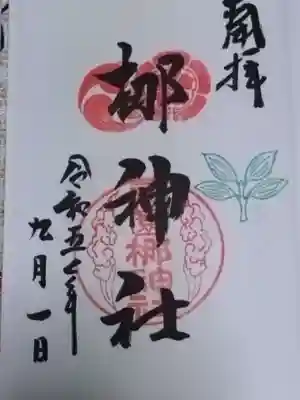 奉拝
梛神社
令和五年
九月一日